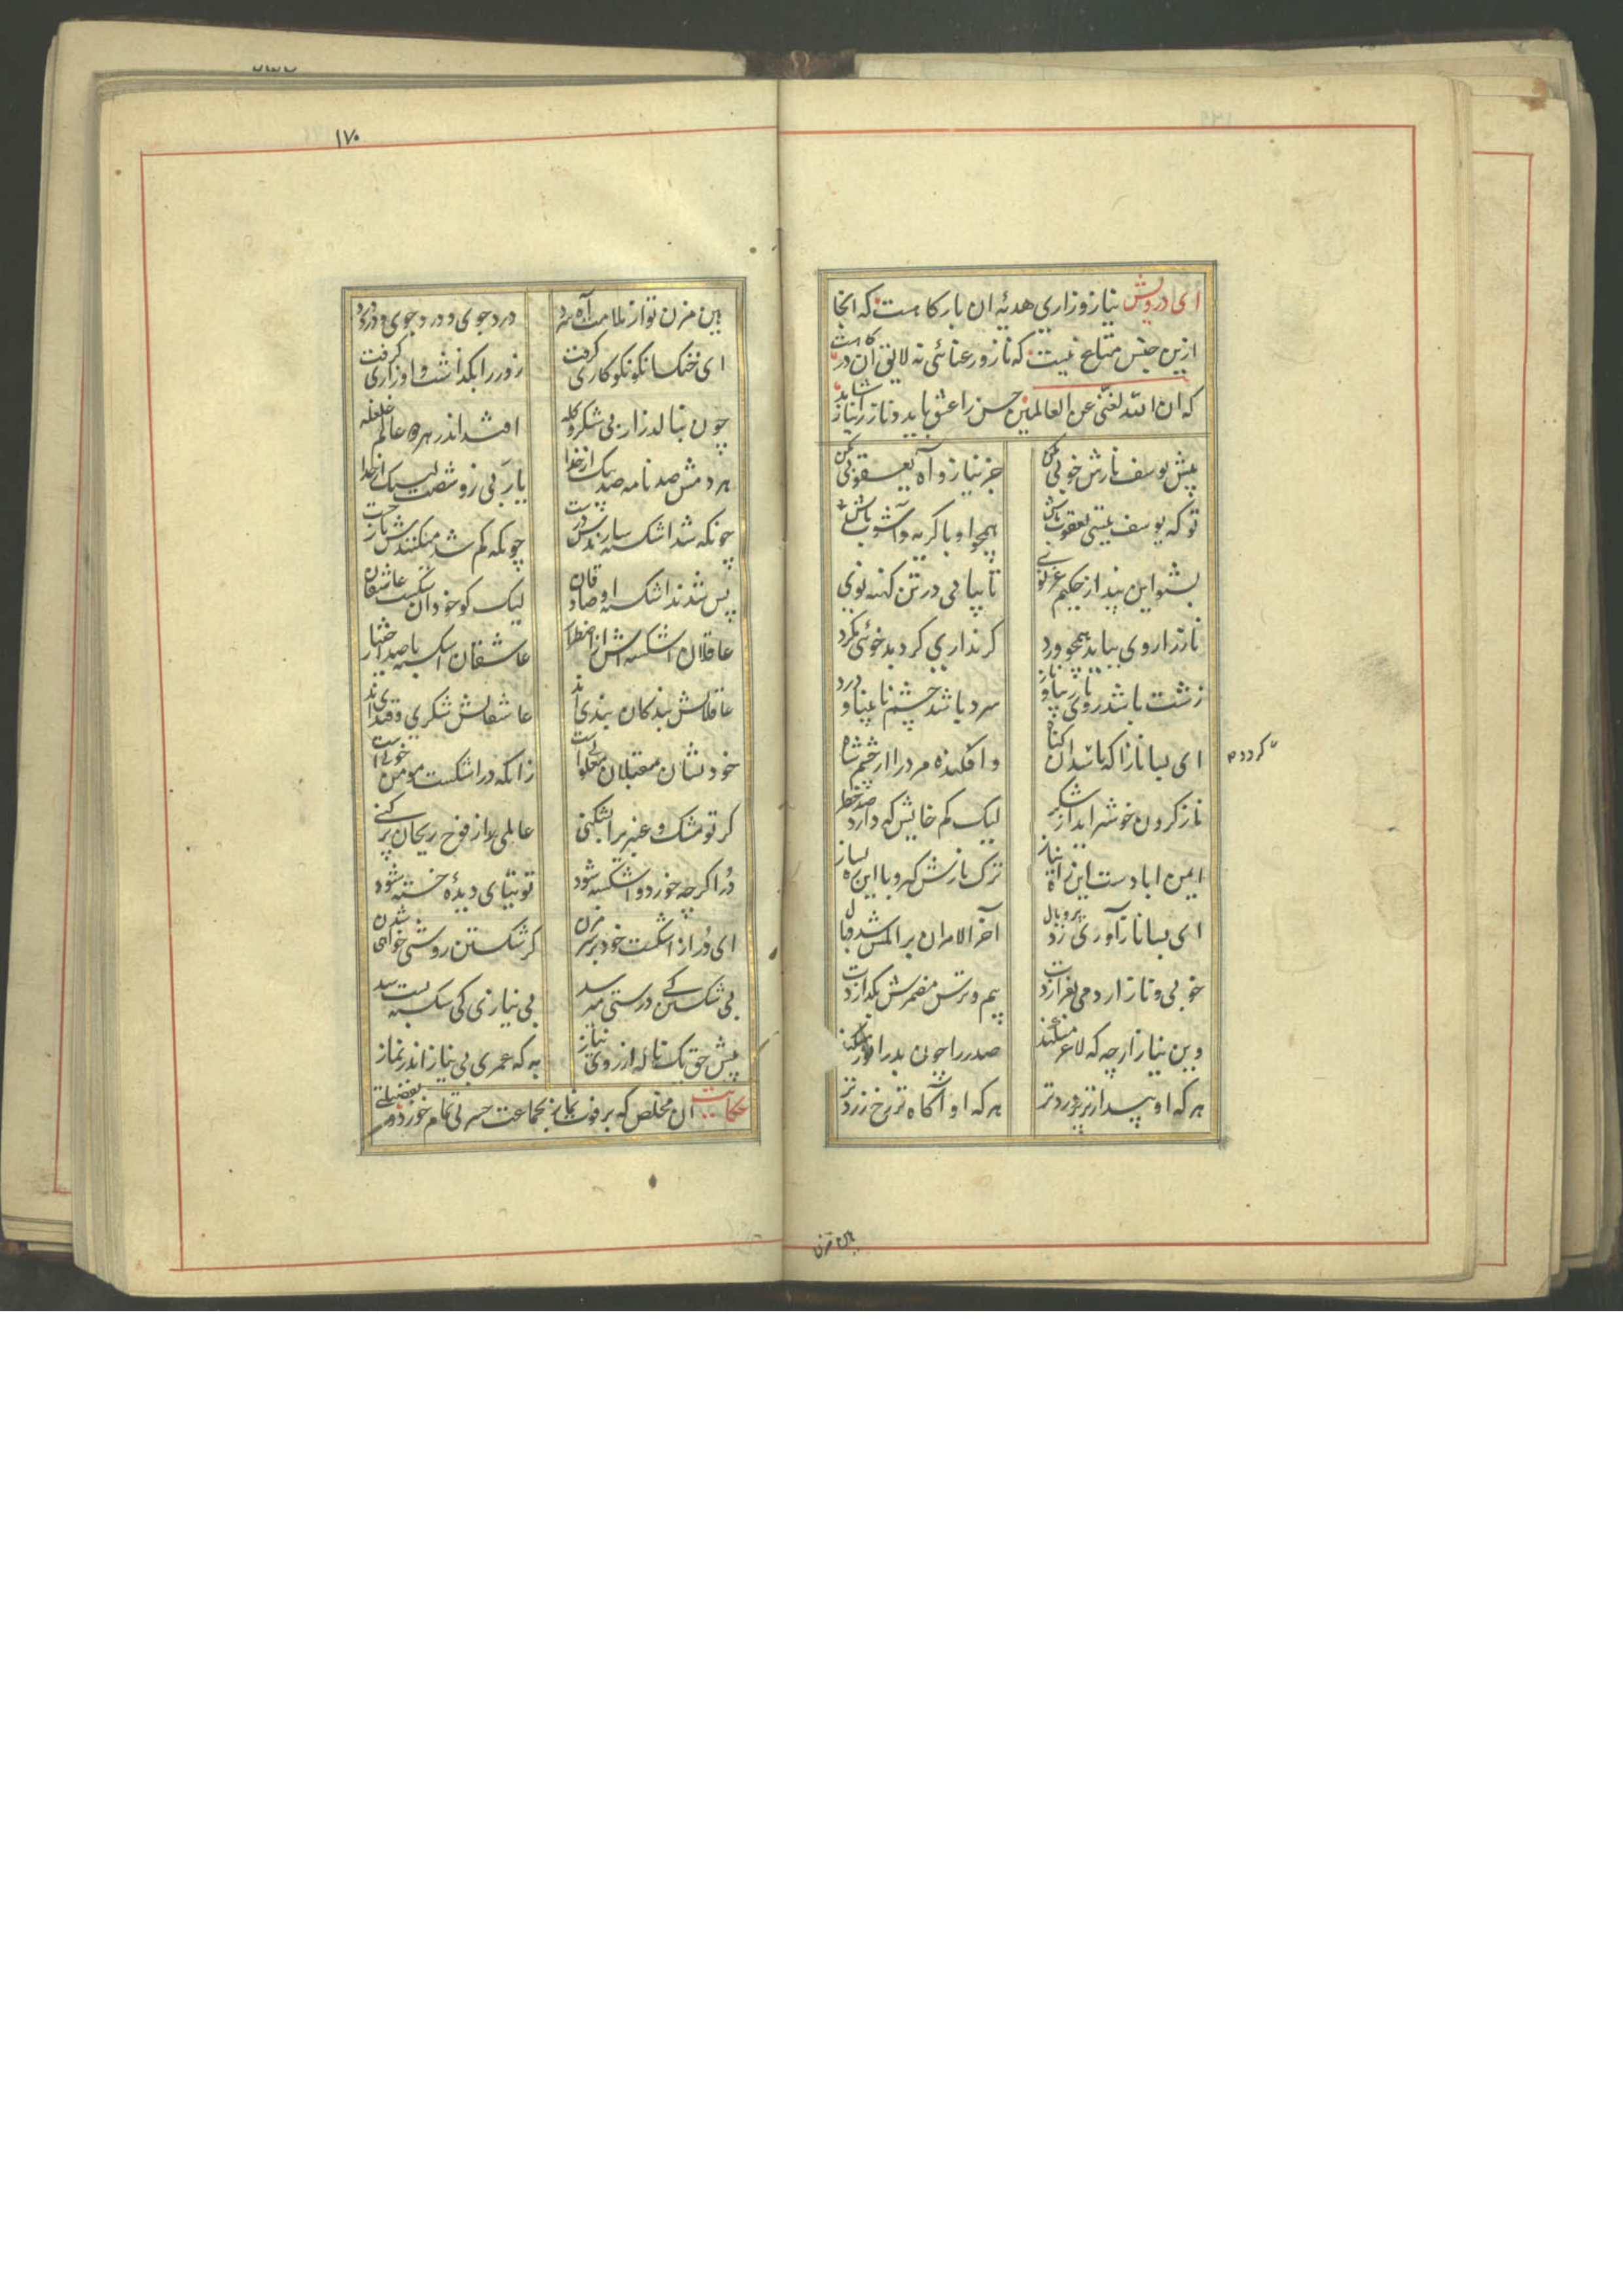 ای درویش نیاز و زاری هدیهٔ ان بارکاهست که انجا
ازین جنس متاع نیست که ناز و رعنائی نه لایق آن درکاهست
که ان الله لغنی عن العالمین حسن را عشق باید و ناز را نیاز شاید
پیش یوسف نازش خوبی مکن جز نیاز و آه یعقوبی مکن
تو که یوسف نیستی یعقوب باش همچو او با کریه و آشوب باش
بشنو این پند از حکیم غزنوی تا بیابی در تن کهنه نوی
ناز را روی بباید همچو ورد کر نداری کرد بدخوئی مکرد
زشت باشد روی نازیبا و ناز سرد باشد چشم نابینا و درد
ای بسا نازا که باشد آن کناه و افکنده مر درا از چشم شاه
کردد م
ناز کردن خوشتر اید از شکر لیک کم خایش که دارد صد خطر
ایمن ابادست این راه نیاز ترک نازش کیر و با این ره بساز
ای بسا ناز آوری زد پر و بال آخر الامر ان بر انکس شد وبال
خوبی و ناز ار دمی بفرازدت بیم و ترس مضمرش بکدازدت
وین نیاز ارچه که لاغر میکند صدر را چون بدر انور میکند
هر که او بیدارتر پر دردتر هر که او آکاه تر رخ زردتر
هین مزن
۱۷۰
هین مزن تو از ملامت آه سرد درد جوی و درد جوی و درد درد
ای خنک انکو نکوکاری کرفت زور را بکذاشت و او زاری کرفت
چون بنالد زار بی شکر و کله افتد اندر هر دو عالم غلغله
هر دمش صد نامه صد پیک از خدا یاربی زو شصت لبیک از خدا
چونکه شد اشکسته سازندش درست چونکه کم شد میکنندش باز جست
پس شدند اشکسته او صادقان لیک کو خود آن شکست عاشقان
عاقلان اشکسته اش از اضطرار عاشقان اشکسته با صد اختیار
عاقلانش بندکان بندی اند عاشقانش شکری و قندی اند
خود نشان مقبلان مغلوبی است زانکه در اشکست مومن خوبی است
کر تو مشک و عنبر برا بشکنی عالمی را از فوح ریحان پر کنی
در اکر چه خورد و اشکسته شود توتیای دیدهٔ خسته شود
ای در از اشکست خود بر سر مزن کز شکستن روشنی خواهی شدن
بی شکستن کی درستی میرسد بی نیازی کی شکسته
پیش حق یک ناله از روی نیاز به که عمری بی نیاز اندر نماز
حکایت آن مخلص که بر فوت نماز بجماعت حسرتی تمام خورد و